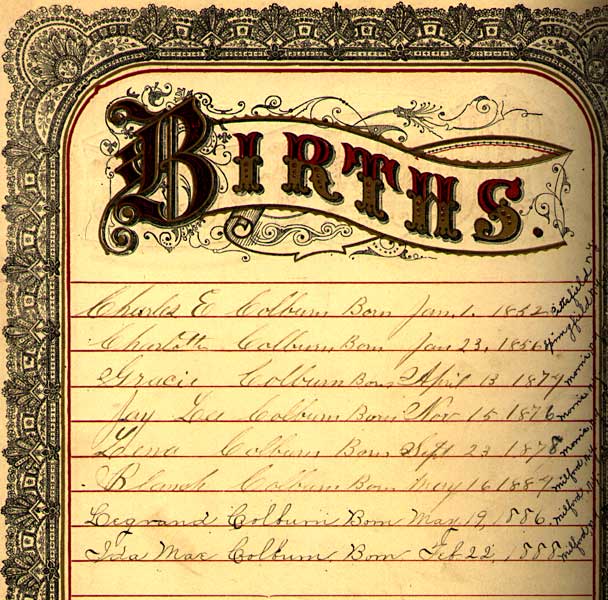 BIRTHS.
Charles E Colburn Born Jan. 1. 1852 Pittsfield N.Y
Charlotte Colburn Born Jan 23, 1856 Springfield N.Y
Gracie Colburn Born April 13 1874 Morris N.Y
Jay Lee Colburn Born Nov 15 1876 Morris N.Y
Lena Colburn Born Sept 23 1878 Morris N.Y
Blanch Colburn Born May 16 1884 Milford N.Y
Legrand Colburn Born May 19, 1886 Milford N.Y
Ida Mae Colburn Born Feb. 22, 1888 Milford